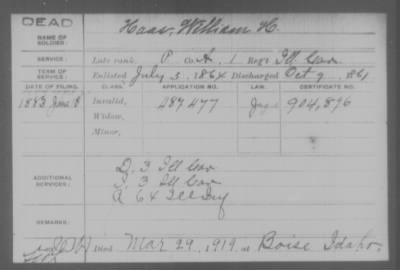 DEAD
NAME OF SOLDIER:
Haas, William H.
SERVICE:
Late rank, P Co. A, 1 Reg't Ill Cav
TERM OF SERVICE:
Enlisted July 3, 1861 Discharged Oct 9, 1861
DATE OF FILING. CLASS. APPLICATION NO. LAW. CERTIFICATE NO.
1883 June 18 Invalid, 487477 904,896
Widow,
Minor,
ADDITIONAL SERVICES:
D. 3 Ill Cav
D. 3 Ill Cav
A 64 Ill Inf
REMARKS:
Died Mar 29, 1919, at Boise Idaho